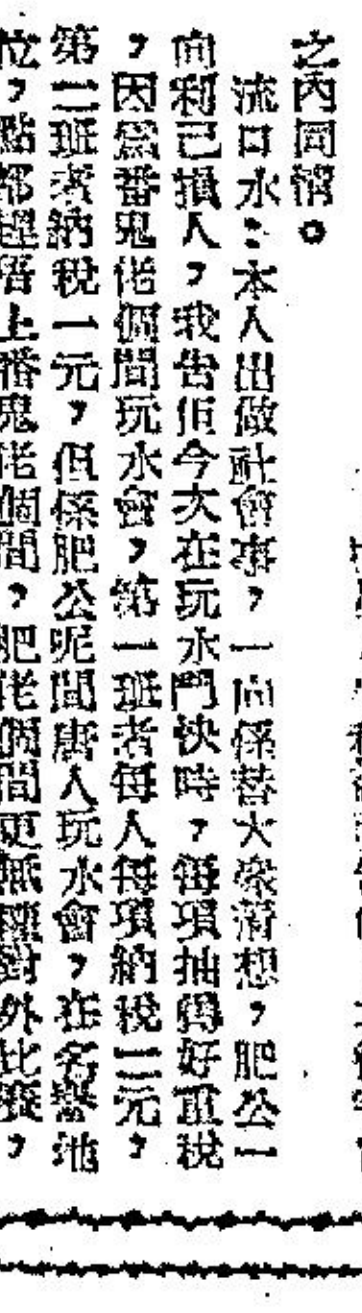 之內同情。
流口水:本人出做社會事,一向係替大衆着想,肥公一
向利己損人,我告佢今次在玩水鬥快時,每項抽得好重税
,因爲番鬼佬個間玩水會,第一班者每人每項納税二元,
第二班者納税一元,但係肥公呢間唐人玩水會,在名譽地
位,點都唔上番鬼佬個間,肥佬個間更無權對外比賽,